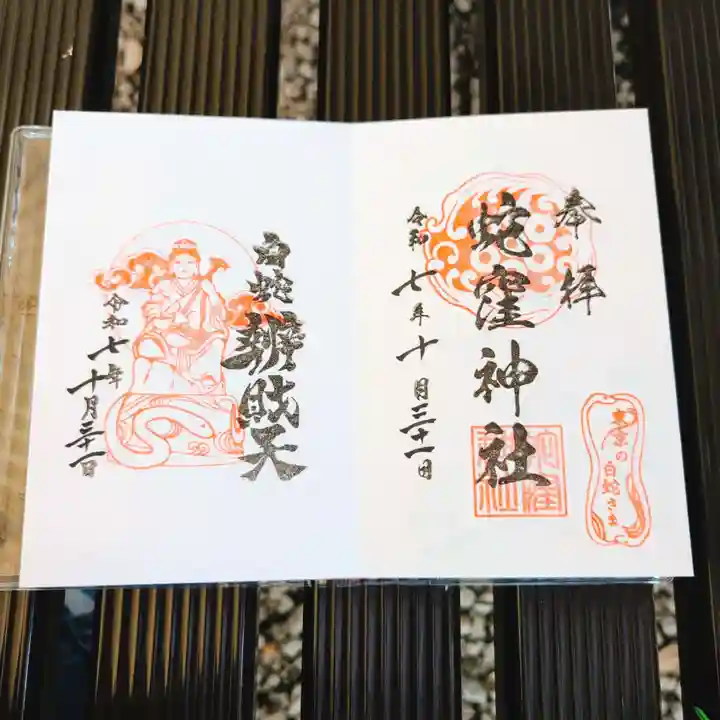 奉拝
蛇窪神社
令和七年十月三十一日
東京の白蛇さま
蛇窪神社
白蛇辨財天
令和七年十月三十一日